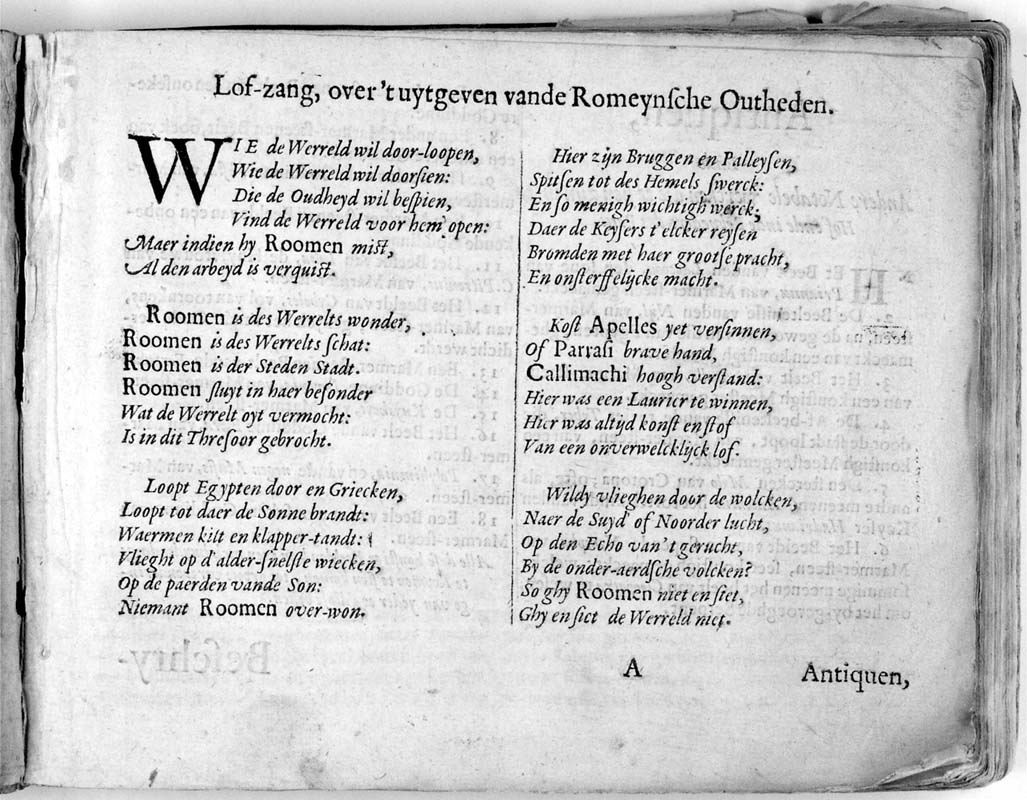 Lof-zang, over 't uytgeven vande Romeynsche Outheden.
WIE de Werreld wil door-loopen,
Wie de Werreld wil doorsien:
Die de Oudheyd wil bespien,
Vind de Werreld voor hem open:
Maer indien hy Roomen mist,
Al den arbeyd is verquist.
Roomen is des Werrelts wonder,
Roomen is des Werrelts schat:
Roomen is der Steden Stadt.
Roomen sluyt in haer besonder
Wat de Werrelt oyt vermocht:
Is in dit Thresoor gebrocht.
Loopt Egypten door en Griecken,
Loopt tot daer de Sonne brandt:
Waermen kilt en klapper-tandt:
Vlieght op d'alder-snelste wiecken,
Op de paerden vande Son:
Niemant Roomen over-won.
Hier zijn Bruggen en Palleysen,
Spitsen tot des Hemels swerck:
En so menigh wichtigh werck,
Daer de Keysers t'elcker reysen
Bromden met haer grootse pracht,
En onsterffelijcke macht.
Kost Apelles yet versinnen,
Of Parrasi brave hand,
Callimachi hoogh verstand:
Hier was een Laurier te winnen,
Hier was altijd konst en stof
Van een onverwelcklijck lof.
Wildy vlieghen door de wolcken,
Naer de Suyd of Noorder lucht,
Op den Echo van 't gerucht,
By de onder-aerdsche volcken?
So ghy Roomen niet en siet,
Ghy en siet de Werreld niet.
A
Antiquen,